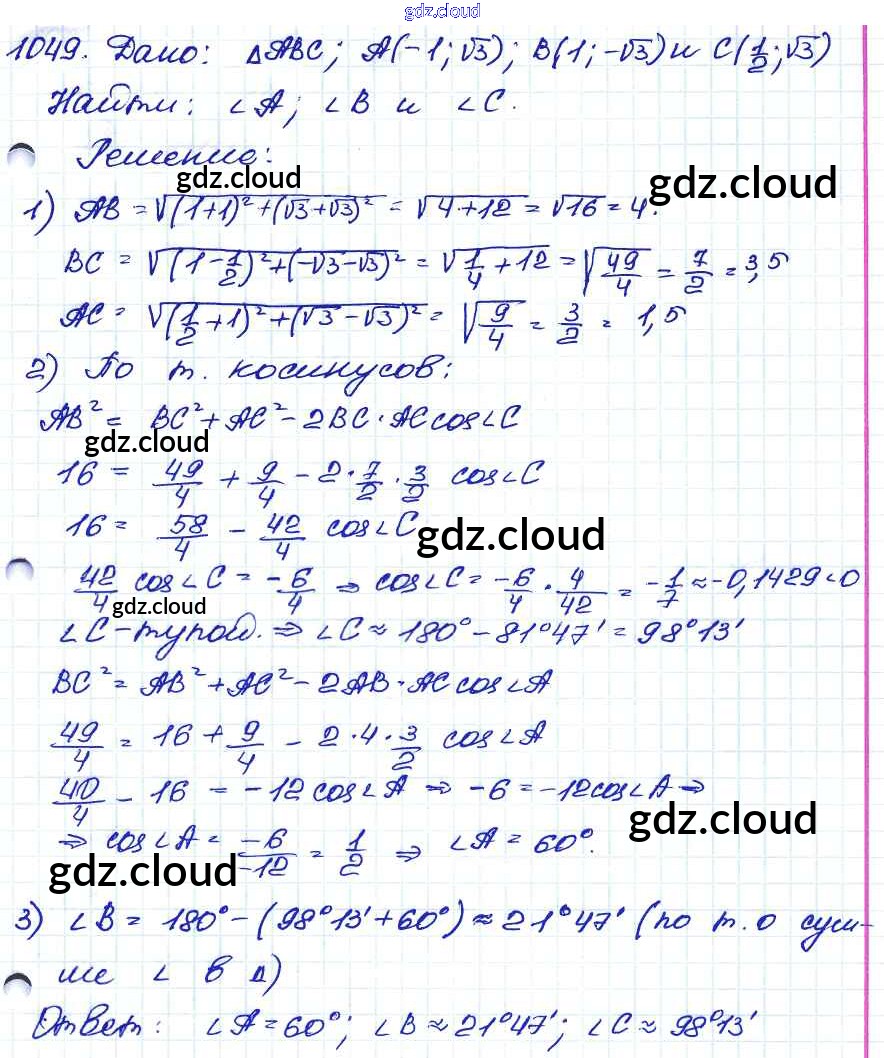 gdz.cloud
1049. Дано: ΔABC; A(-1; √3); B(1; -√3) и C(1/2; √3)
Найти: ∠A; ∠B и ∠C.
Решение:
gdz.cloud
gdz.cloud
1) AB = √((1+1)²+(√3+√3)²) = √(4+12) = √16 = 4.
BC = √((1-1/2)²+(-√3-√3)²) = √(1/4+12) = √(49/4) = 7/2 = 3,5
AC = √((1/2+1)²+(√3-√3)²) = √(9/4) = 3/2 = 1,5
2) По т. косинусов:
AB² = BC²+AC²-2BC·AC cos∠C
gdz.cloud
16 = 49/4 + 9/4 - 2·7/2·3/2 cos∠C
16 = 58/4 - 42/4 cos∠C
gdz.cloud
42/4 cos∠C = -6/4 ⇒ cos∠C = -6/4 · 4/42 = -1/7 ≈ -0,1429<0
gdz.cloud
∠C-тупой. ⇒ ∠C ≈ 180°-81°47' = 98°13'
BC² = AB²+AC²-2AB·AC cos∠A
49/4 = 16 + 9/4 - 2·4·3/2 cos∠A
40/4 - 16 = -12cos∠A ⇒ -6 = -12cos∠A ⇒
gdz.cloud
⇒ cos∠A = -6/-12 = 1/2 ⇒ ∠A = 60°.
gdz.cloud
3) ∠B = 180°-(98°13'+60°) ≈ 21°47' (по т. о сум-
ме ∠ в Δ)
Ответ: ∠A = 60°; ∠B ≈ 21°47'; ∠C ≈ 98°13'